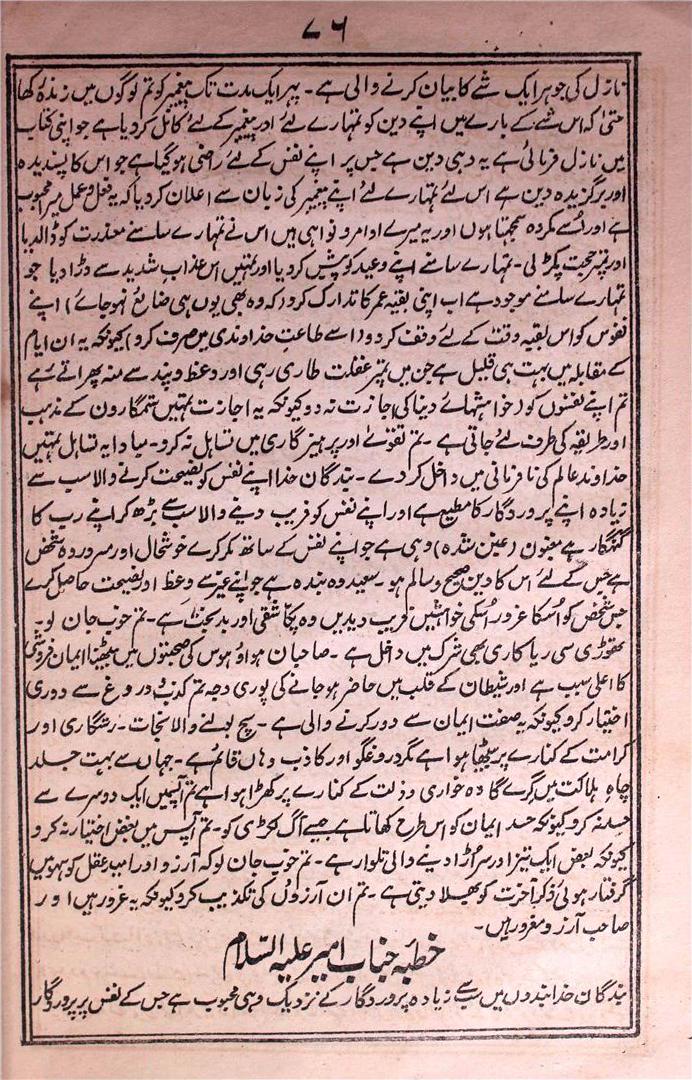 ۷۶
نازل کی جو ہر ایک شے کا بیان کرنے والی ہے۔ پہر ایک مدت تک پیغمبر کو تم لوگوں میں زندہ رکھا
حتیٰ کہ اس شے کے بارے میں اپنے دین کو تمہارے لئے اور پیغمبر کے لئے کامل کر دیا ہے جو اپنی کتاب
میں نازل فرمائی ہے یہ وہی دین ہے جس پر اپنے نفس کے لئے راضی ہو گیا ہے جو اس کا پسندیدہ
اور برگزیدہ دین ہے اس لئے تمہارے لئے اپنے پیغمبر کی زبان سے اعلان کر دیا کہ یہ فعل و عمل میرا محبوب
ہے اور اسے مکروہ سمجہتا ہوں اور یہ میرے اوامر و نواہی ہیں اس نے تمہارے سامنے معذرت کو ڈالدیا
اور تمپر حجت پکڑ لی۔ تمہارے سامنے اپنے وعید کو پیش کر دیا اور تمہیں اس عذاب شدید سے ڈرا دیا جو
تمہارے سامنے موجود ہے اب اپنی بقیہ عمر کا تدارک کرو (کہ وہ بھی یوں ہی ضایع نہو جائے) اپنے
نفوس کو اس بقیہ وقت کے لئے وقف کر دو (اسے طاعت خداوندی میں صرف کرو) کیونکہ یہ ان ایام
کے مقابلہ میں بہت ہی قلیل ہے جن میں تمپر غفلت طاری رہی اور وعظ و پند سے منہ پھراتے رہے
تم اپنے نفسوں کو (خواہشہائے دنیا کی اجازت نہ دو کیونکہ یہ اجازت تمہیں ستمگارون کے مذہب
اور طریقہ کی طرف لئے جاتی ہے۔ تم تقوےٰ اور پرہیزگاری میں تساہل نہ کرو۔ مبادا یہ تساہل تمہیں
خداوند عالم کی نافرمانی میں داخل کر دے۔ بندگان خدا اپنے نفس کو نصیحت کرنے والا سب سے
زیادہ اپنے پروردگار کا مطیع ہے اور اپنے نفس کو فریب دینے والا سب سے بڑھ کر اپنے رب کا
گنہگار ہے مغبون (غبن شدہ) وہی ہے جو اپنے نفس کے ساتھ مکر کرے خوشحال اور مسرور وہ شخص
ہے جس کے لئے اس کا دین صحیح و سالم ہو۔ سعید وہ بندہ ہے جو اپنے غیر سے وعظ اور نصیحت حاصل کرے
جس شخص کو اُسکا غرور اُسکی خواہشیں فریب دیدیں وہ پکا شقی اور بدبخت ہے۔ تم خوب جان لو۔
تھوڑی سی ریاکاری بھی شرک میں داخل ہے۔ صاحبان ہوا و ہوس کی صحبتوں میں بیٹھنا ایمان فروشی
کا اعلیٰ سبب ہے اور شیطان کے قلب میں حاضر ہو جانے کی پوری وجہ تم کذب و دروغ سے دوری
اختیار کرو کیونکہ یہ صفت ایمان سے دور کرنے والی ہے۔ سچ بولنے والا نجات۔ رستگاری اور
کرامت کے کنارے پر بیٹھا ہوا ہے مگر دروغگو اور کاذب وہاں قائم ہے۔ جہاں سے بہت جلد
چاہ ہلاکت میں گرے گا وہ خواری و ذلت کے کنارے پر کھڑا ہوا ہے تم آپسمیں ایک دوسرے سے
حسد نہ کرو کیونکہ حسد ایمان کو اس طرح کھاتا ہے جیسے آگ لکڑی کو۔ تم آپس میں بغض اختیار نہ کرو
کیونکہ بغض ایک تیز اور سر اُڑا دینے والی تلوار ہے۔ تم خوب جان لو کہ آرزو اور امید عقل کو سہو میں
گرفتار ہوئی ذکر آخرت کو بھیلا دیتی ہے۔ تم ان آرزوں کی تکذیب کرو کیونکہ یہ غرور ہیں اور
صاحب آرزو مغرور ہیں۔
خطبہ جناب امیر علیہ السلام
بندگان خدا بندوں میں سب سے زیادہ پروردگار کے نزدیک وہی محبوب ہے جس کے نفس پر پروردگار